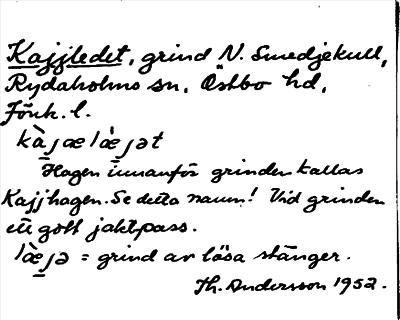 Kajjledet, grind N. Smedjekull,
Rydaholms sn, Östbo hd,
Jönk. l.
kàjælæ̀jət
Hagen innanför grinden kallas
Kajjhagen. Se detta namn! Vid grinden
ett gott jaktpass.
læ̀jə = grind av lösa stänger.
Th. Andersson 1952.